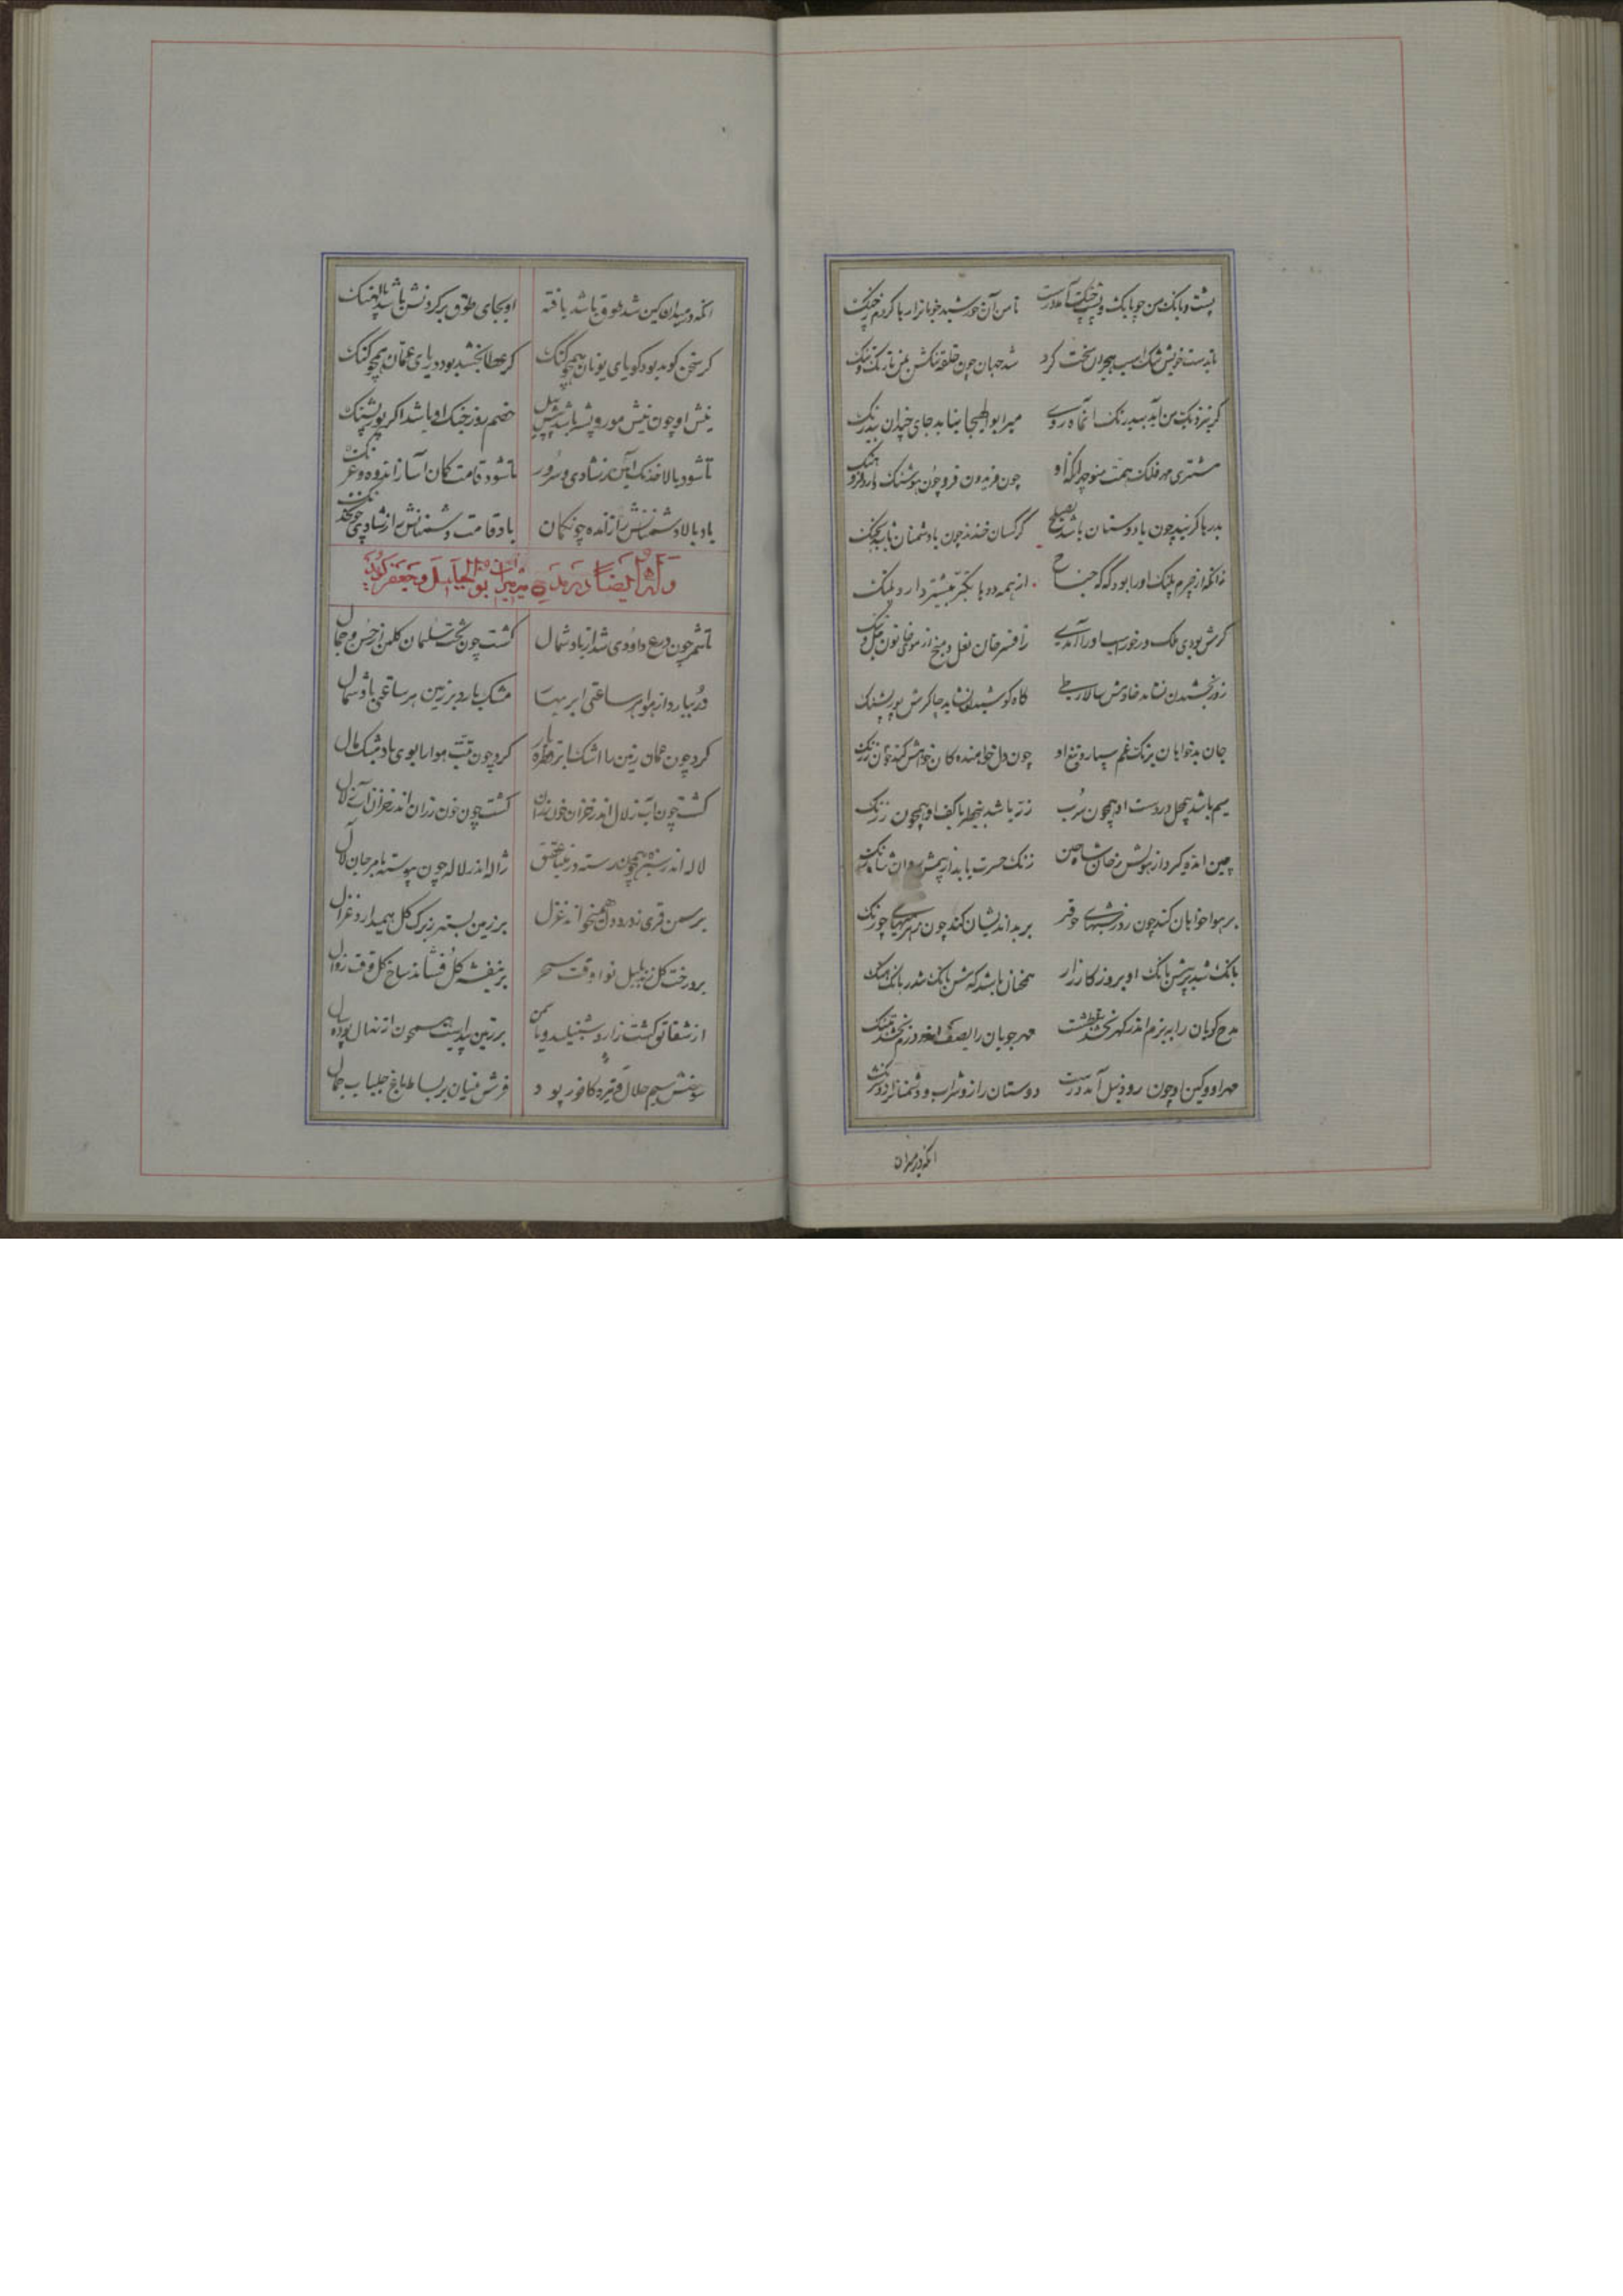 پشت و بانک من چو بانک و پشت چنک آمد درست تا من آن خورشید خوبانرا رها کردم ز چنک
تا بدست خویش تنک اسب هجران سخت کرد شد جهان چون حلقه تنکش بمن بر تنک و تنک
کر نیزد یک من آید بیدرنک آنماه روی میر ابوالهیجا نیابد جای چندان بیدرنک
مشتری مهر فلک همت منوچهر آنکه او چون فریدون فر و چون هوشنک دارد فر و هنک
بدر باکرنید چون با دوستان باشد بصلح کرکسان خندند چون با دشمنان باشد بجنک
زانکه از چرم پلنک او را بود که که جناح از همه دد با تکبر بیشتر دارد پلنک
کرش بودی ملک درخور اسب او را آمدی ز افسر خان نعل و میخ از موی خاتون پال و تنک
روز بخشیدن نشاید خادمش سالار طی کاه کوشیدن نشاید چاکرش پور پشنک
جان بدخواهان برنک غم سپارد تیغ او چون دل خواهنده کان خواهش کند چون زنک
سیم باشد بیمحل در دست او همچون سرب زر باشد بیخطر با کف او همچون زرنک
چین انده کیرد از هولش رخان شاه چین زنک حسرت یابد از بیمش روان شاه زنک
بر هوا خواهان کند چون روز شبهای چو قیر بر بداندیشان کند چون زهر میهای چو زنک
بانک شیدیز پیش بانک او بروز کارزار همچنان باشد که پیش بانک تندر بانک هنک
مدح کویان را به بزم اندر کهر بخشد بطشت مهرجویان را بصف اندر درم بخشد بتنک
مهر او و کین او چون رود نیل آمد درست دوستان را زو شراب و دشمنان را زو شرنک
انکه در میدان
انکه در میدان کین شد طوق باشد یافته او بجای طوق بر کردنش باشد پالهنک
کر سخن کوید بود کویای یونان همچو کنک کر عطا بخشد بود دریای عمان همچو کنک
نیش او چون نیش مور و پشه باشد پیش پیل خصم روز جنک او باشد اکر پور پشنک
تا شود بالا خدنک آیین ز شادی و سرور تا شود قامت کمان آسا ز اندوه و غرنک
باد بالا دشمنانش را ز انده چون کمان باد قامت دوستانش را ز شادی چون خدنک
وله ایضا در مدح میران ابوالجلیل و جعفر کوید
تا شمر چون درع داودی شد از باد شمال کشت چون تخت سلیمان کلبن از حسن و جمال
در ببارد از هوا هر ساعتی ابر بهار مشک بارد بر زمین هر ساعتی باد شمال
کرد چون عمان زمین را اشک ابر قطره بار کرد چون تبت هوا را بوی باد مشک مال
کشت چون آب زلال اندر خزان خون رزان کشت چون خون رزان اندر خزان آب زلال
لاله اندر سبزه همچون رسته در مینا عقیق ژاله اندر لاله چون پیوسته با مرجان لآل
بر سمن قمری ز درد دل همیخواند غزل بر زمین بستر ز برک کل همیدارد غزال
بر درخت کل زند بلبل نوا وقت سحر بر بنفشه کل فشاند شاخ کل وقت زوال
از شقایق کشت زار و شنبلید و یاسمن
سوسنش سیم حلال و تیره کافور پود فرش